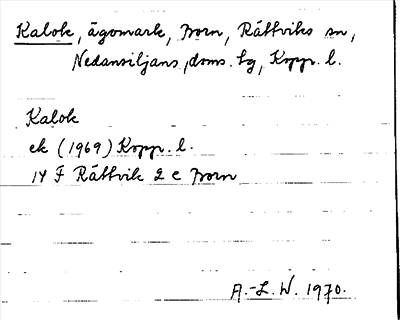 Kalok, ägomark, Born, Rättviks sn,
Nedansiljans doms. tg, Kopp. l.
Kalok
ek (1969) Kopp. l.
14 F Rättvik 2 c Born
A.-L. W. 1970.